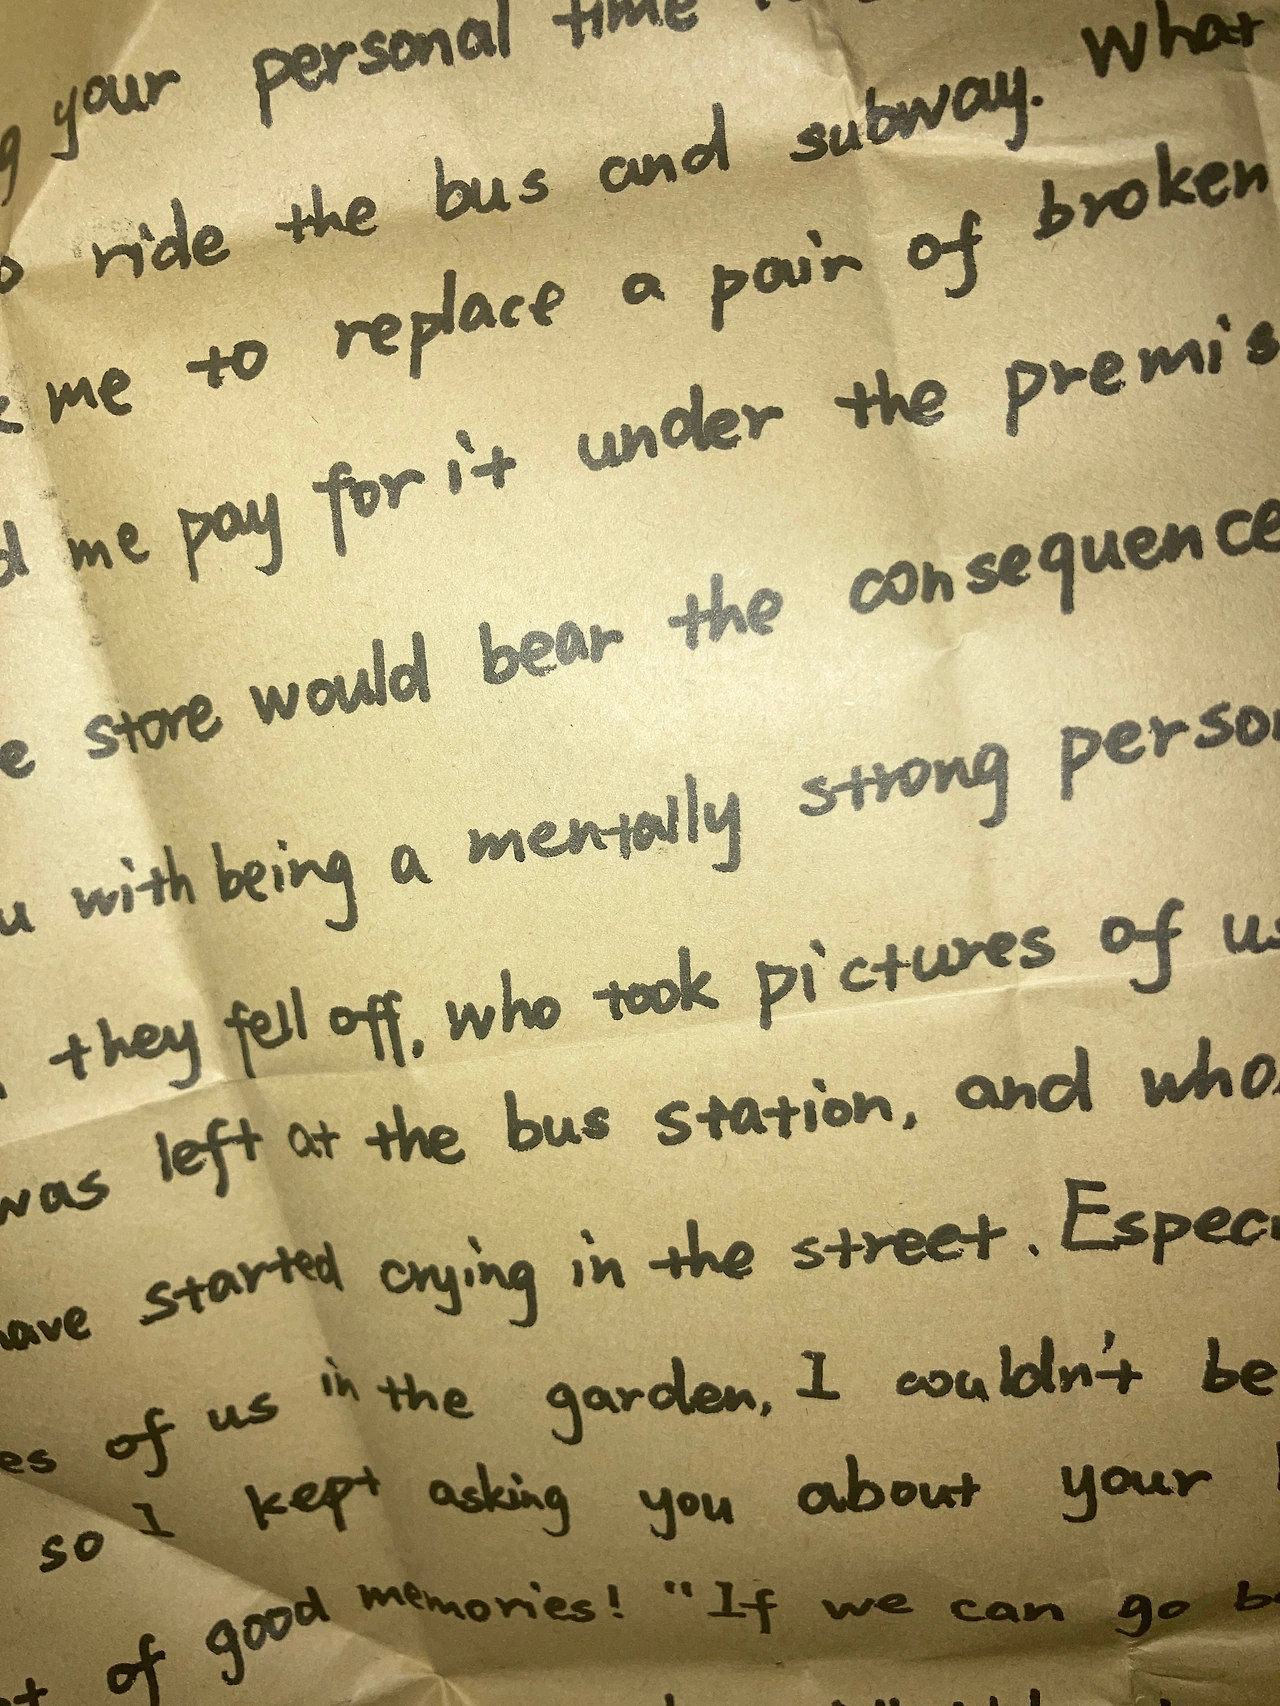 your personal time
ride the bus and subway. What
me to replace a pair of broken
me pay for it under the premis
store would bear the consequence
with being a mentally strong person
they fell off, who took pictures of us
was left at the bus station, and who
have started crying in the street. Especi
of us in the garden, I couldn't be
so I kept asking you about your
of good memories! "If we can go